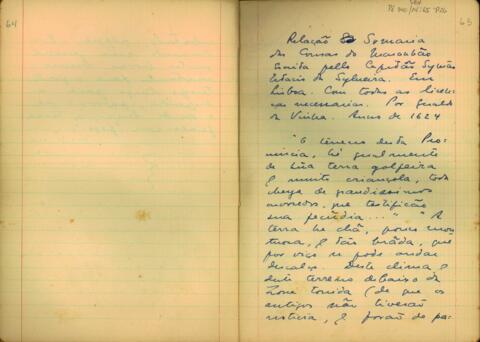 64
63
Relação Sumaria
das Cousas do Maranhão
Escrita pello Capitão Symão
Estacio da Sylveira. Em
Lisboa. Com todas as licen
ças necessarias. Por Geraldo
da Vinha. Anno de 1624
"O terreno desta Pro-
vincia, hé geralmente
de hũa terra
e muito criançola, toda
chea de grandissimos
arvoredos, que testificão
sua fecũdia..." "A
terra he chã, pouco mon
tuosa, e tão brãda, que
por viço se pode andar
descalço. Deste clima e
deste terreno debaixo da
Zona torrida (de que os
antigos não tiverão
noticia, e forão de pa-